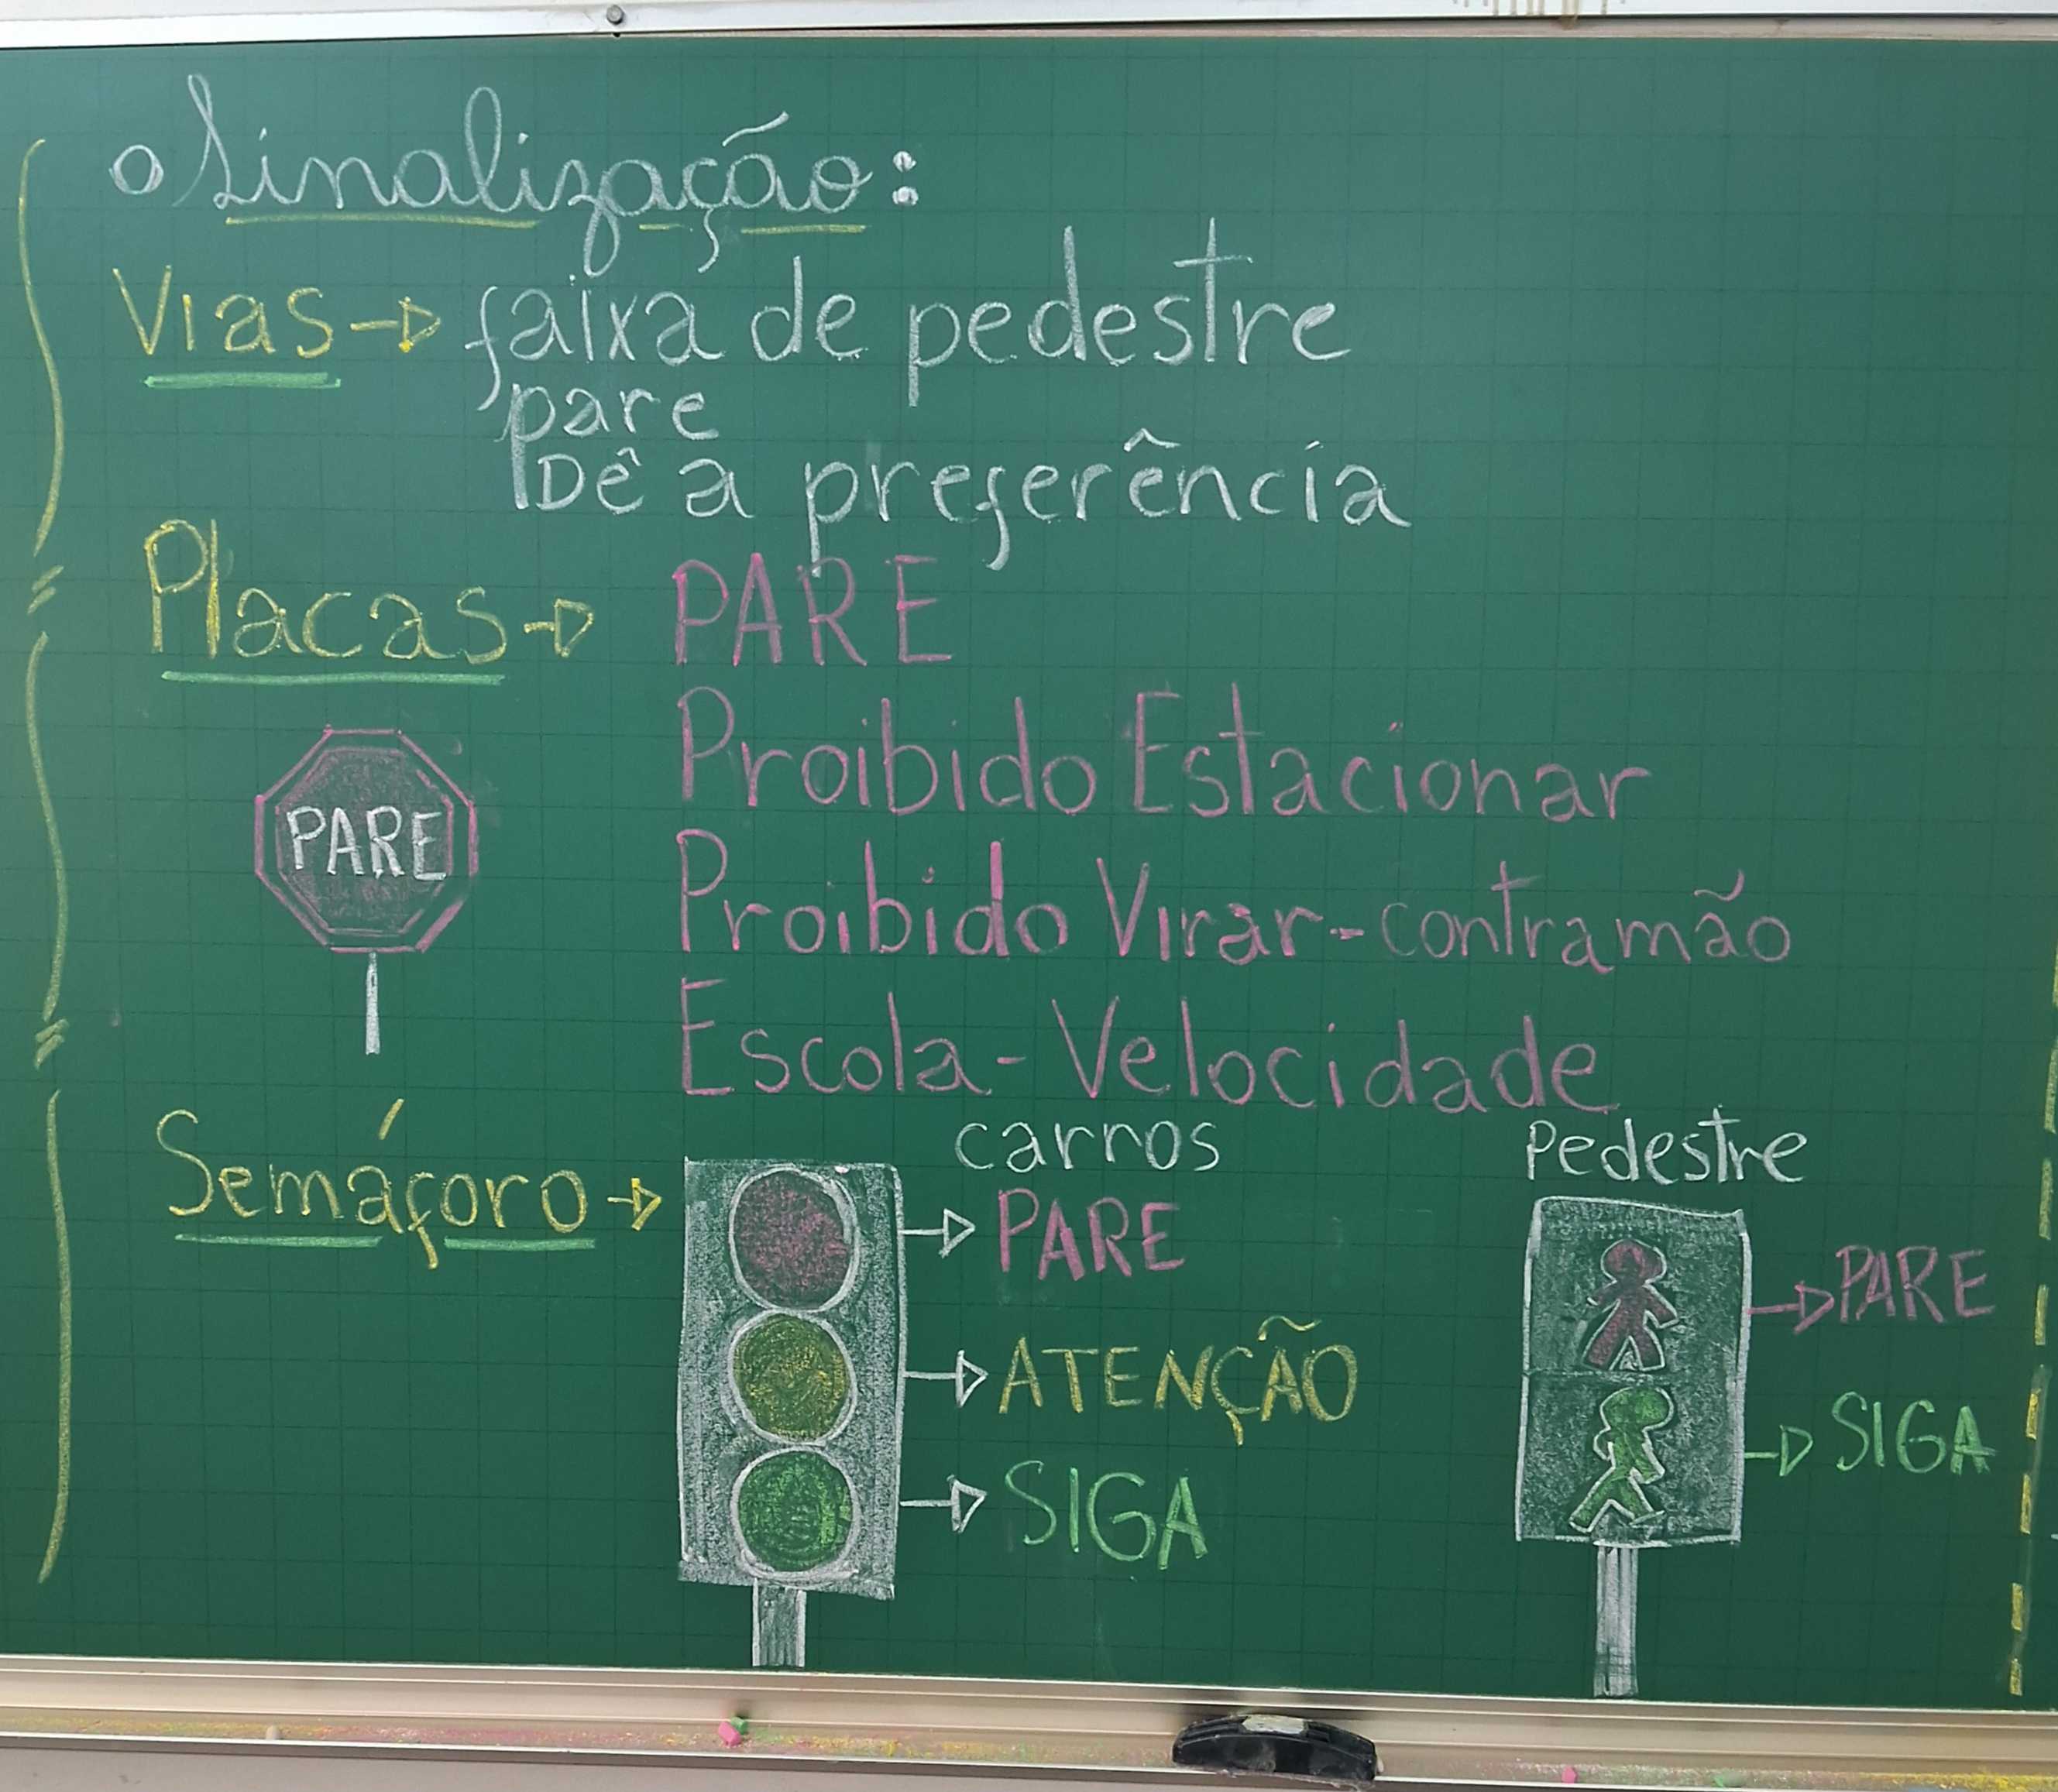 o Sinalização:
Vias → faixa de pedestre
pare
Dê a preferência
Placas → PARE
Proibido Estacionar
PARE
Proibido Virar - contramão
Escola - Velocidade
Semáforo →
carros
Pedestre
→ PARE
→ PARE
→ ATENÇÃO
→ SIGA
→ SIGA